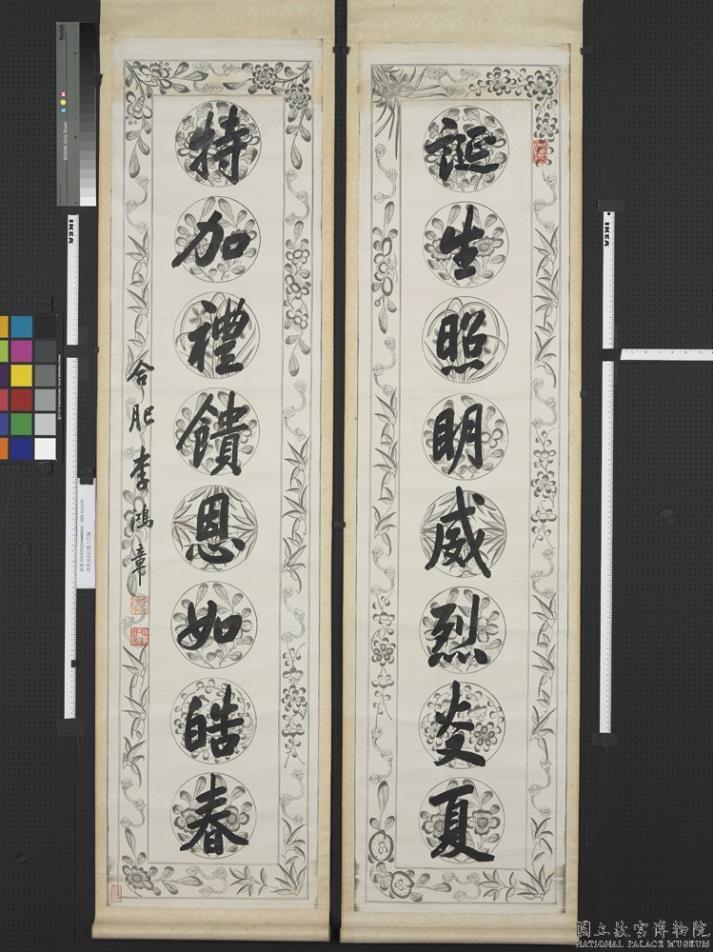 誕生照明威烈炎夏
特加禮饋恩如皓春
合肥李鴻章
IKEA
IKEA
國立故宮博物院
NATIONAL PALACE MUSEUM